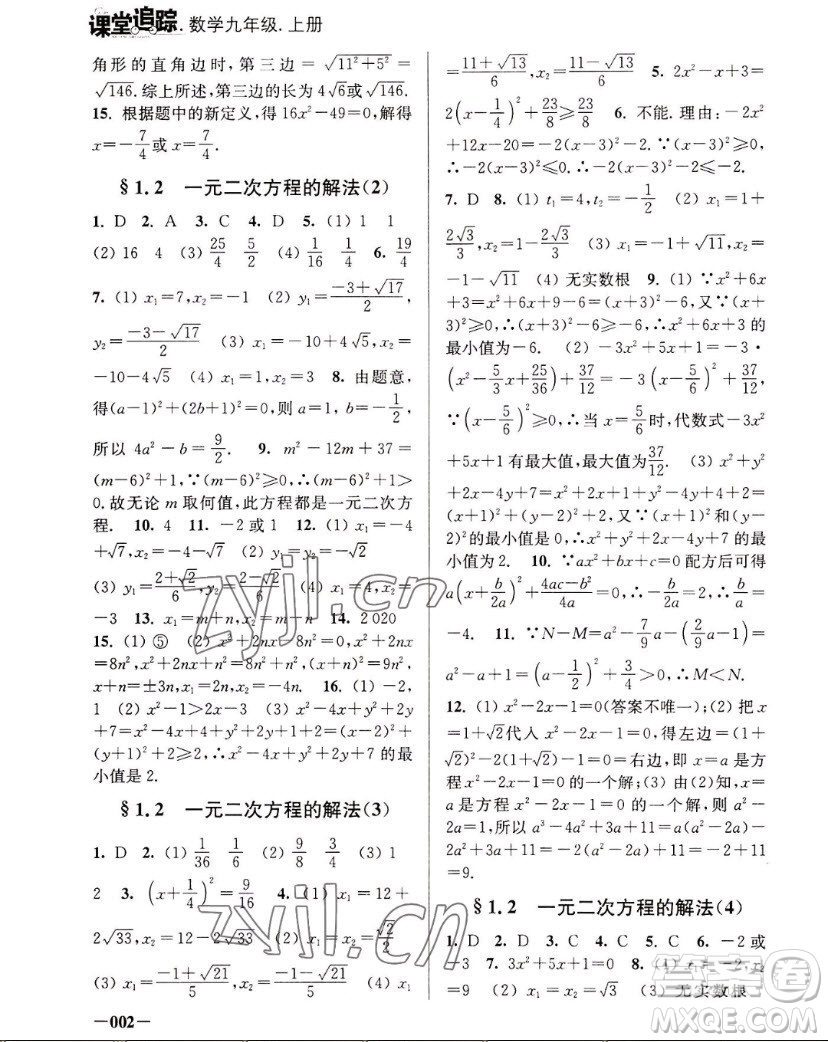 课堂追踪.数学九年级.上册
角形的直角边时,第三边=√(11²+5²)=
√146.综上所述,第三边的长为4√6或√146.
15. 根据题中的新定义,得16x²-49=0,解得
x=-7/4或x=7/4.
§1.2 一元二次方程的解法(2)
1. D 2. A 3. C 4. D 5. (1) 1 1
(2) 16 4 (3) 25/4 5/2 (4) 1/16 1/4 6. 19/4
7. (1) x₁=7,x₂=-1 (2) y₁=(-3+√17)/2,
y₂=(-3-√17)/2 (3) x₁=-10+4√5,x₂=
-10-4√5 (4) x₁=1,x₂=3 8. 由题意,
得(a-1)²+(2b+1)²=0,则a=1,b=-1/2,
所以4a²-b=9/2. 9. m²-12m+37=
(m-6)²+1,∵(m-6)²≥0,∴(m-6)²+1>
0.故无论m取何值,此方程都是一元二次方
程. 10. 4 11. -2或1 12. (1) x₁=-4
+√7,x₂=-4-√7
(3) y₁=(2+√2)/6,y₂=(2-√2)/6 (4) x₁=4,x₂=
-3 13. x₁=m+n,x₂=m-n 14. 2 020
15. (1) ⑤ (2) x²+2nx-8n²=0,x²+2nx
=8n²,x²+2nx+n²=8n²+n²,(x+n)²=9n²,
x+n=±3n,x₁=2n,x₂=-4n. 16. (1) -2,
1 (2) x²-1>2x-3 (3) x²-4x+y²+2y
+7=x²-4x+4+y²+2y+1+2=(x-2)²+
(y+1)²+2≥2,∴x²-4x+y²+2y+7的最
小值是2.
§1.2 一元二次方程的解法(3)
1. D 2. (1) 1/36 1/6 (2) 9/8 3/4 (3) 1
2 3. (x+1/4)²=9/16 4. (1) x₁=12+
2√33,x₂=12-2√33 (2) x₁=x₂=√2/2
(3) x₁=(-1+√21)/5,x₂=(-1-√21)/5 (4) x₁
—002—
=(11+√13)/6,x₂=(11-√13)/6 5. 2x²-x+3=
2(x-1/4)²+23/8≥23/8 6. 不能.理由:-2x²
+12x-20=-2(x-3)²-2.∵(x-3)²≥0,
∴-2(x-3)²-2≤-2.
7. D 8. (1) t₁=4,t₂=-1/2 (2) x₁=1+
2√3/3,x₂=1-2√3/3 (3) x₁=-1+√11,x₂=
-1-√11 (4) 无实数根 9. (1) ∵x²+6x
+3=x²+6x+9-6=(x+3)²-6,又∵(x+
3)²≥0,∴(x+3)²-6≥-6,∴x²+6x+3的
最小值为-6. (2) -3x²+5x+1=-3·
(x²-5/3x+25/36)+37/12=-3(x-5/6)²+37/12,
∵(x-5/6)²≥0,∴当x=5/6时,代数式-3x²
+5x+1有最大值,最大值为37/12. (3) x²+y²
+2x-4y+7=x²+2x+1+y²-4y+4+2=
(x+1)²+(y-2)²+2,又∵(x+1)²≥0,(y-
2)²≥0,∴x²+y²+2x-4y+7≥2,即其最
小值为2. 10. ∵ax²+bx+c=0配方后可得
a(x+b/2a)²+(4ac-b²)/4a=0,∴-b/2a=-b/2a=
-4. 11. ∵N-M=a²-7/9a-(2/9a-1)=
a²-a+1=(a-1/2)²+3/4>0,∴M<N.
12. (1) x²-2x-1=0(答案不唯一) (2) 把
x=1+√2代入x²-2x-1=0,得左边=(1+
√2)²-2(1+√2)-1=0=右边,即x=a是方
程x²-2x-1=0的一个解; (3) 由(2)知,x
=a是方程x²-2x-1=0的一个解,则a²-
2a=1,所以a³-4a²+3a+11=a(a²-2a)-
2a²+3a+11=a-2a²+4a-a+11=-2+11
=9.
§1.2 一元二次方程的解法(4)
1. D 2. D 3. C 4. C 5. C 6. -2或
-3 7. 3x²+5x+1=0 8. (1) x₁=-2,x₂
=9 (2) x₁=x₂=√3 (3) 无实数根
zyjl.cn
zyjl.cn
答案圈
MXQE.COM